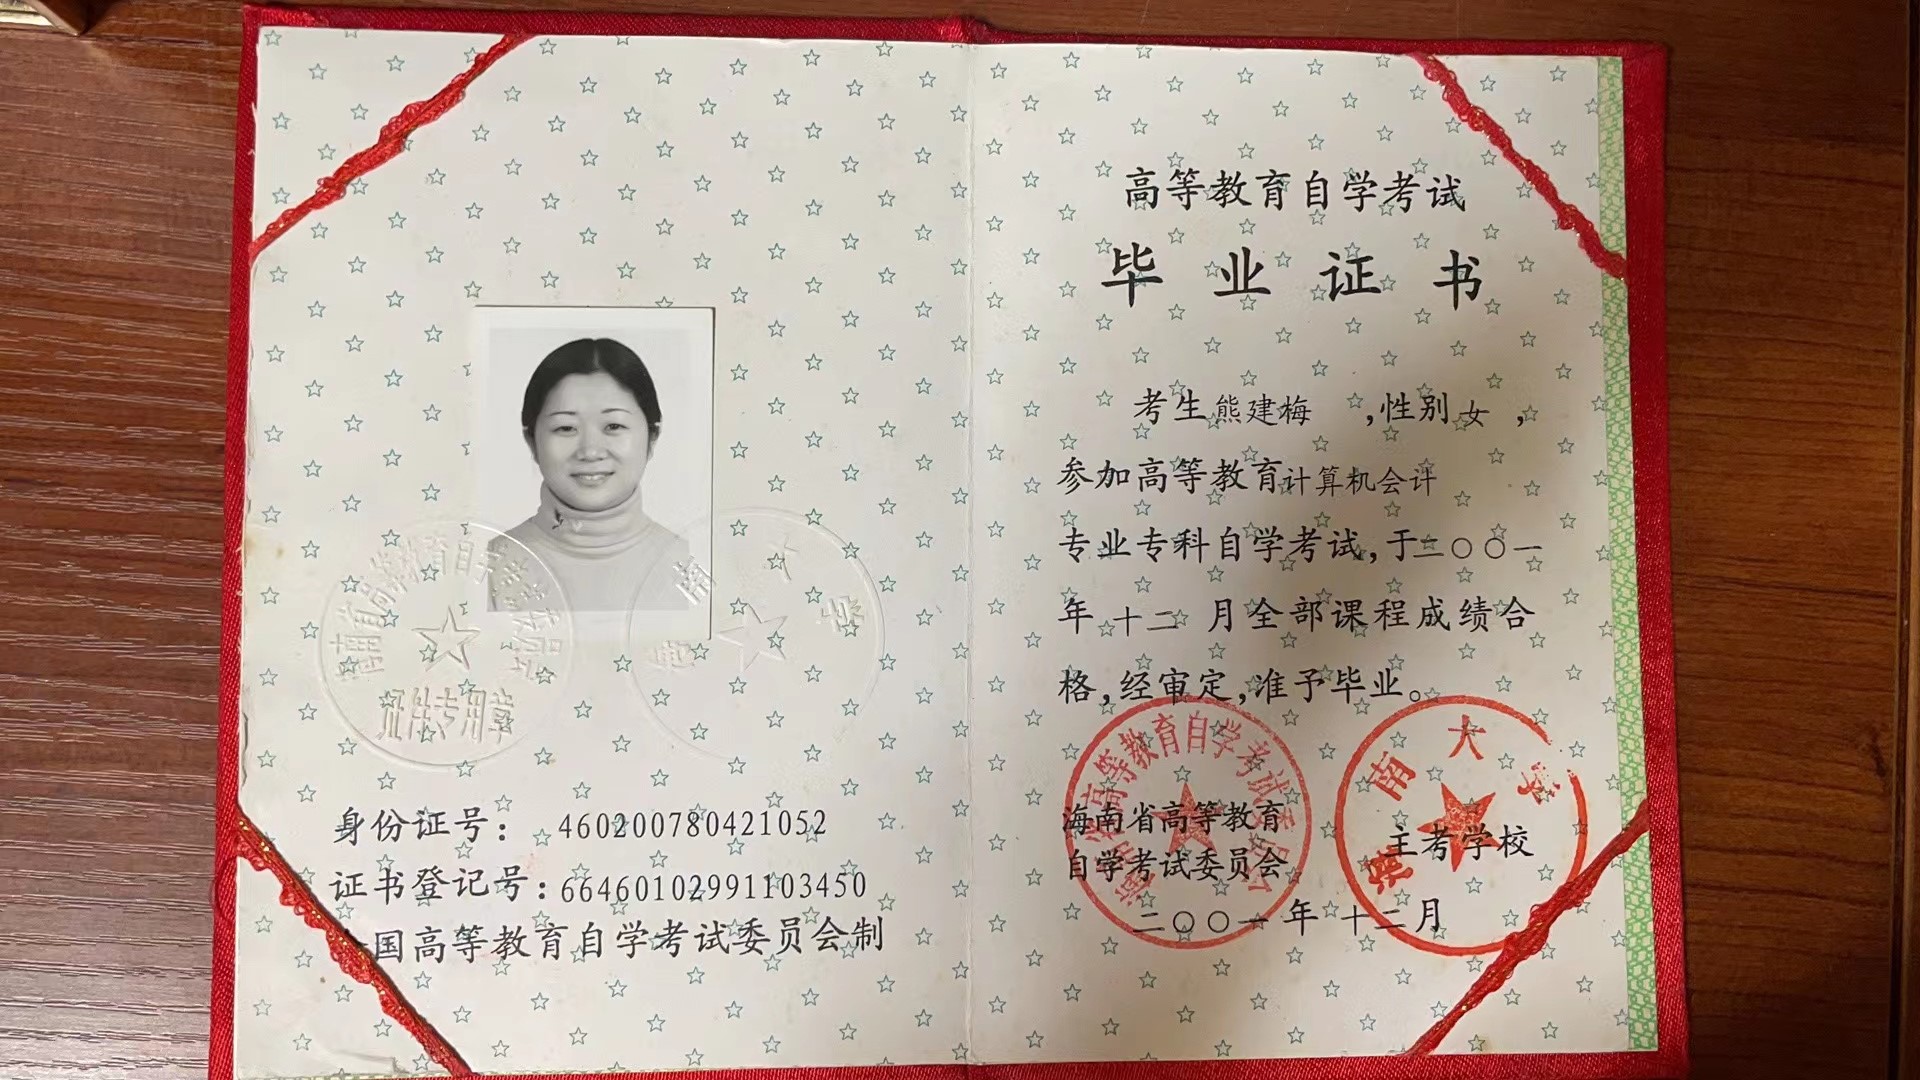 海南省高等教育自学考试委员会
证件专用章
海南大学
身份证号: 460200780421052
证书登记号:66460102991103450
国高等教育自学考试委员会制
高等教育自学考试
毕业证书
考生熊建梅,性别女,
参加高等教育计算机会计
专业专科自学考试,于二〇〇一
年十二月全部课程成绩合
格,经审定,准予毕业。
海南省高等教育自学考试委员会
海南大学
海南省高等教育
自学考试委员会
主考学校
二〇〇一年十二月